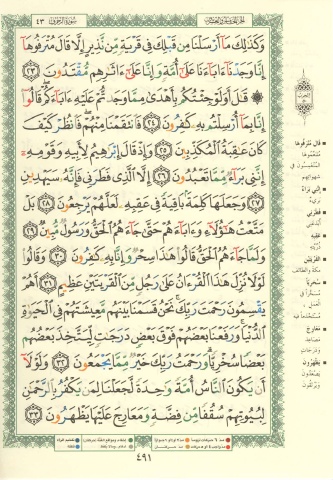 سورة الزخرف ٤٣
وَكَذَٰلِكَ مَآ أَرْسَلْنَا مِن قَبْلِكَ فِى قَرْيَةٍ مِّن نَّذِيرٍ إِلَّا قَالَ مُتْرَفُوهَآ
إِنَّا وَجَدْنَآ ءَابَآءَنَا عَلَىٰٓ أُمَّةٍ وَإِنَّا عَلَىٰٓ ءَاثَٰرِهِم مُّقْتَدُونَ ٢٣
۞ قَٰلَ أَوَلَوْ جِئْتُكُم بِأَهْدَىٰ مِمَّا وَجَدتُّمْ عَلَيْهِ ءَابَآءَكُمْ قَالُوٓا۟
إِنَّا بِمَآ أُرْسِلْتُم بِهِۦ كَٰفِرُونَ ٢٤ فَٱنتَقَمْنَا مِنْهُمْ فَٱنظُرْ كَيْفَ
كَانَ عَٰقِبَةُ ٱلْمُكَذِّبِينَ ٢٥ وَإِذْ قَالَ إِبْرَٰهِيمُ لِأَبِيهِ وَقَوْمِهِۦٓ
إِنَّنِى بَرَآءٌ مِّمَّا تَعْبُدُونَ ٢٦ إِلَّا ٱلَّذِى فَطَرَنِى فَإِنَّهُۥ سَيَهْدِينِ
٢٧ وَجَعَلَهَا كَلِمَةًۢ بَاقِيَةً فِى عَقِبِهِۦ لَعَلَّهُمْ يَرْجِعُونَ ٢٨ بَلْ
مَتَّعْتُ هَٰٓؤُلَآءِ وَءَابَآءَهُمْ حَتَّىٰ جَآءَهُمُ ٱلْحَقُّ وَرَسُولٌ مُّبِينٌ ٢٩
وَلَمَّا جَآءَهُمُ ٱلْحَقُّ قَالُوا۟ هَٰذَا سِحْرٌ وَإِنَّا بِهِۦ كَٰفِرُونَ ٣٠ وَقَالُوا۟
لَوْلَا نُزِّلَ هَٰذَا ٱلْقُرْءَانُ عَلَىٰ رَجُلٍ مِّنَ ٱلْقَرْيَتَيْنِ عَظِيمٍ ٣١ أَهُمْ
يَقْسِمُونَ رَحْمَتَ رَبِّكَ ۚ نَحْنُ قَسَمْنَا بَيْنَهُم مَّعِيشَتَهُمْ فِى ٱلْحَيَوٰةِ
ٱلدُّنْيَا ۚ وَرَفَعْنَا بَعْضَهُمْ فَوْقَ بَعْضٍ دَرَجَٰتٍ لِّيَتَّخِذَ بَعْضُهُم
بَعْضًا سُخْرِيًّا ۗ وَرَحْمَتُ رَبِّكَ خَيْرٌ مِّمَّا يَجْمَعُونَ ٣٢ وَلَوْلَآ
أَن يَكُونَ ٱلنَّاسُ أُمَّةً وَٰحِدَةً لَّجَعَلْنَا لِمَن يَكْفُرُ بِٱلرَّحْمَٰنِ
لِبُيُوتِهِمْ سُقُفًا مِّن فِضَّةٍ وَمَعَارِجَ عَلَيْهَا يَظْهَرُونَ ٣٣
قال مترفوها
إنني براء
فطرني
عقبه
القريتين
سخريا
معارج
يظهرون
٤٩١